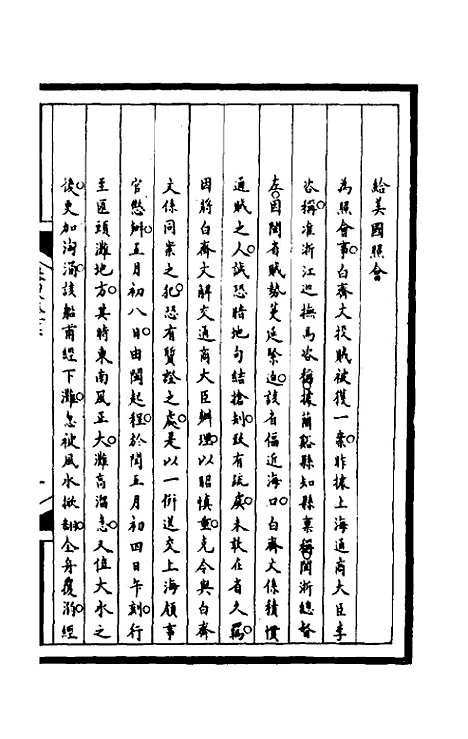 給美國照會
為照會事白齊文投賊被獲一案昨據上海通商大臣李
咨稱准浙江巡撫馬咨稱據蘭谿縣知縣稟稱閩浙總督
左因閩省賊勢蔓延緊迫該省偪近海口白齊文係積慣
通賊之人誠恐暗地勾結搶刦致有疏虞未敢在省久羈
因將白齊文解交通商大臣辦理以昭慎重克令與白齊
文係同案之犯恐有質證之處是以一併送交上海領事
官懲辦五月初八日由閩起程於閏五月初四日午刻行
至匯頭灘地方其時東南風正大灘高溜急又值大水之
後更加洶湧該船甫經下灘忽被風水掀翻全身覆溺經